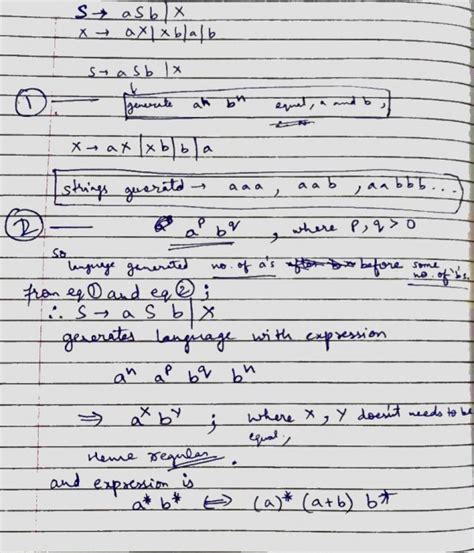 S → aSb | X
X → aX | Xb | a | b
S → aSb | X
① — generate aⁿ bⁿ equal, a and b,
X → aX | Xb | b | a
strings generated → aaa, aab, aabbb...
② — a^p b^q, where P, q > 0
so language generated no. of a's before some no. of b's
from eq ① and eq ② ;
∴ S → a S b | X
generates language with expression
aⁿ a^p b^q bⁿ
⇒ a^x b^y ; where X, Y doesn't needs to be
equal,
Hence regular.
and expression is
a* b* ⇔ (a)* (a+b) b*